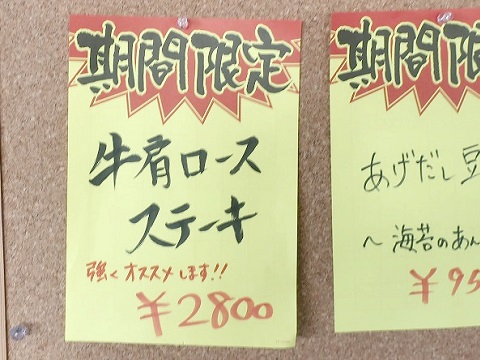 期間限定
牛肩ロース
ステーキ
強くオススメします!!
¥2800
期間限
あげだし豆
～海苔のあん
¥95